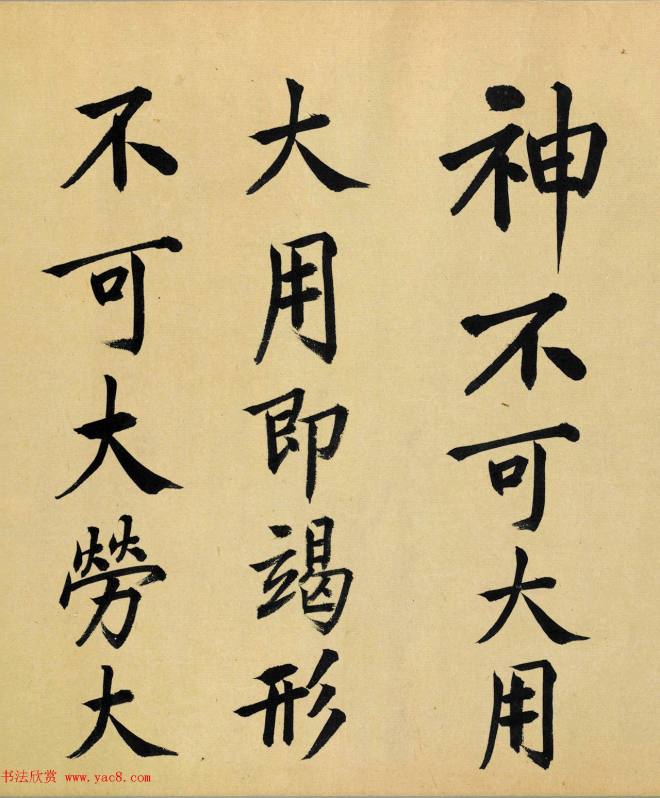 神不可大用
大用即竭形
不可大勞大
书法欣赏 www.yac8.com